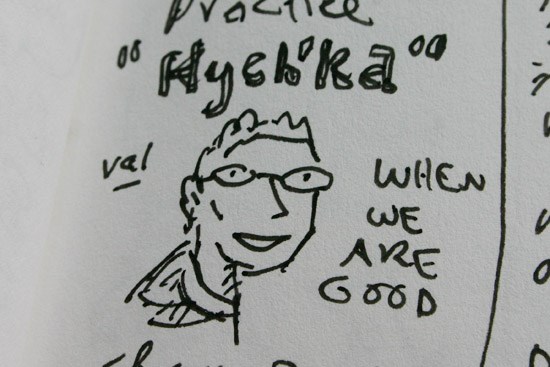 Practice
"Hych'ka"
val
WHEN
WE
ARE
GOOD